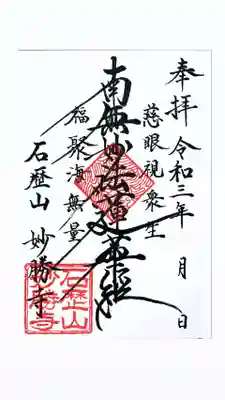 奉拝 令和三年 月 日
慈眼視衆生
南無妙法蓮華経
福聚海無量
石歴山 妙勝寺
石歴山
妙勝寺